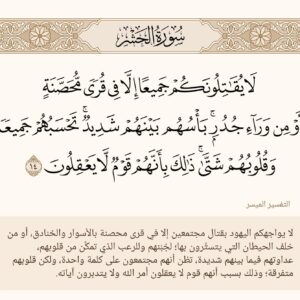 سُورَةُ الحَشْرِ
لَا يُقَاتِلُونَكُمْ جَمِيعًا إِلَّا فِي قُرًى مُّحَصَّنَةٍ
أَوْ مِن وَرَآءِ جُدُرٍۭ ۚ بَأْسُهُم بَيْنَهُمْ شَدِيدٌ ۚ تَحْسَبُهُمْ جَمِيعًا
وَقُلُوبُهُمْ شَتَّىٰ ۚ ذَٰلِكَ بِأَنَّهُمْ قَوْمٌ لَّا يَعْقِلُونَ ١٤
التفسير الميسر
لا يواجهكم اليهود بقتال مجتمعين إلا في قرى محصنة بالأسوار والخنادق، أو من
خلف الحيطان التي يتستَّرون بها؛ لجُبْنهم وللرعب الذي تمكَّن من قلوبهم،
عداوتهم فيما بينهم شديدة، تظن أنهم مجتمعون على كلمة واحدة، ولكن قلوبهم
متفرقة؛ وذلك بسبب أنهم قوم لا يعقلون أمر الله ولا يتدبرون آياته.